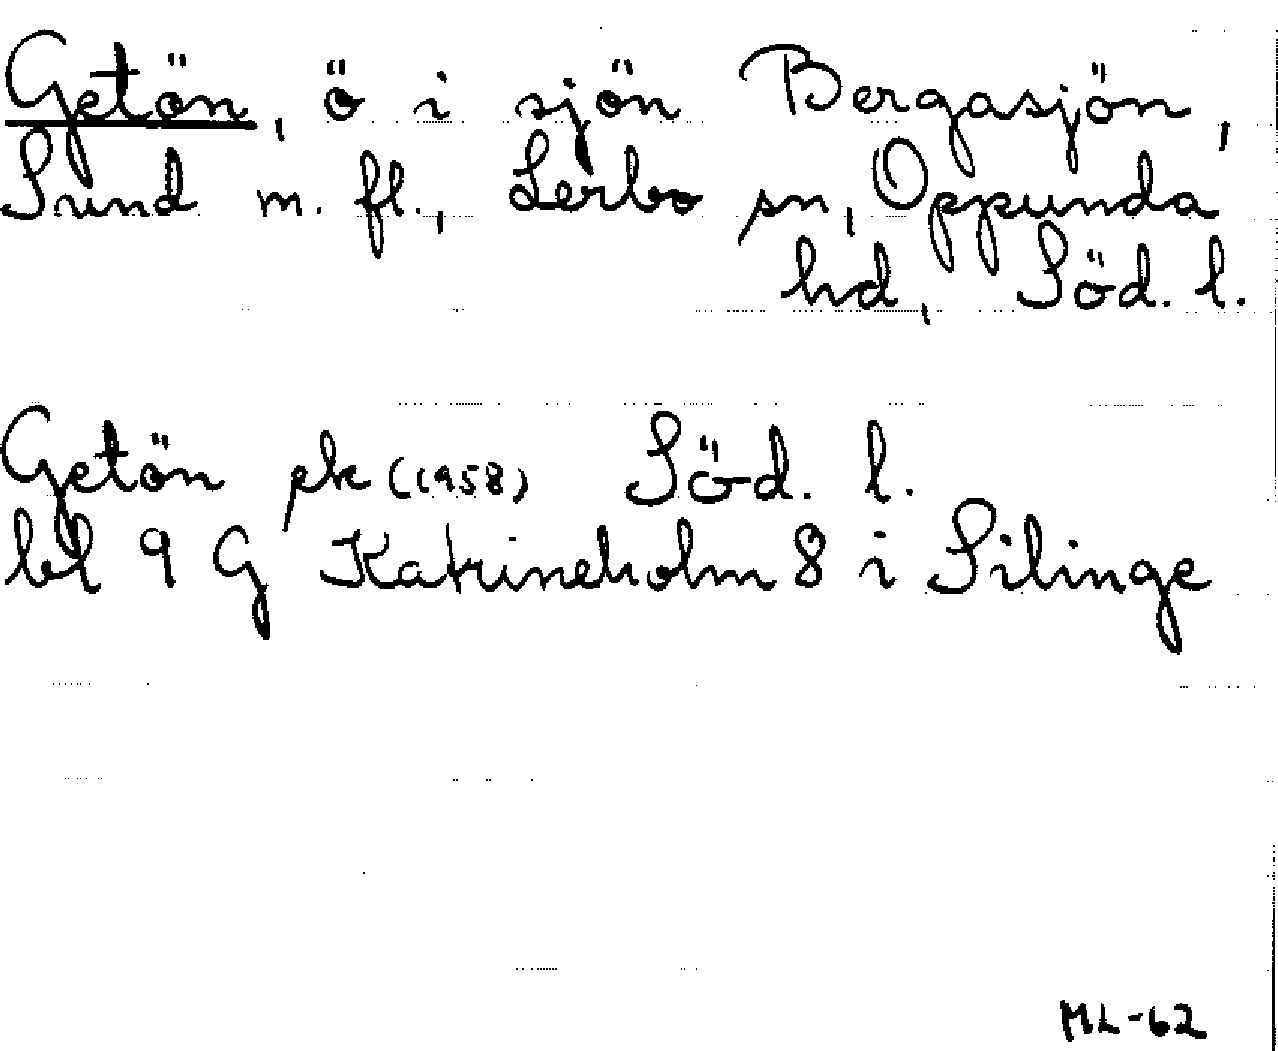 Getön, ö i sjön Bergasjön,
Sund m. fl., Lerbo sn, Oppunda
hd, Söd. l.
Getön ek (1958) Söd. l.
bl 9 G Katrineholm 8 i Silinge
ML-62